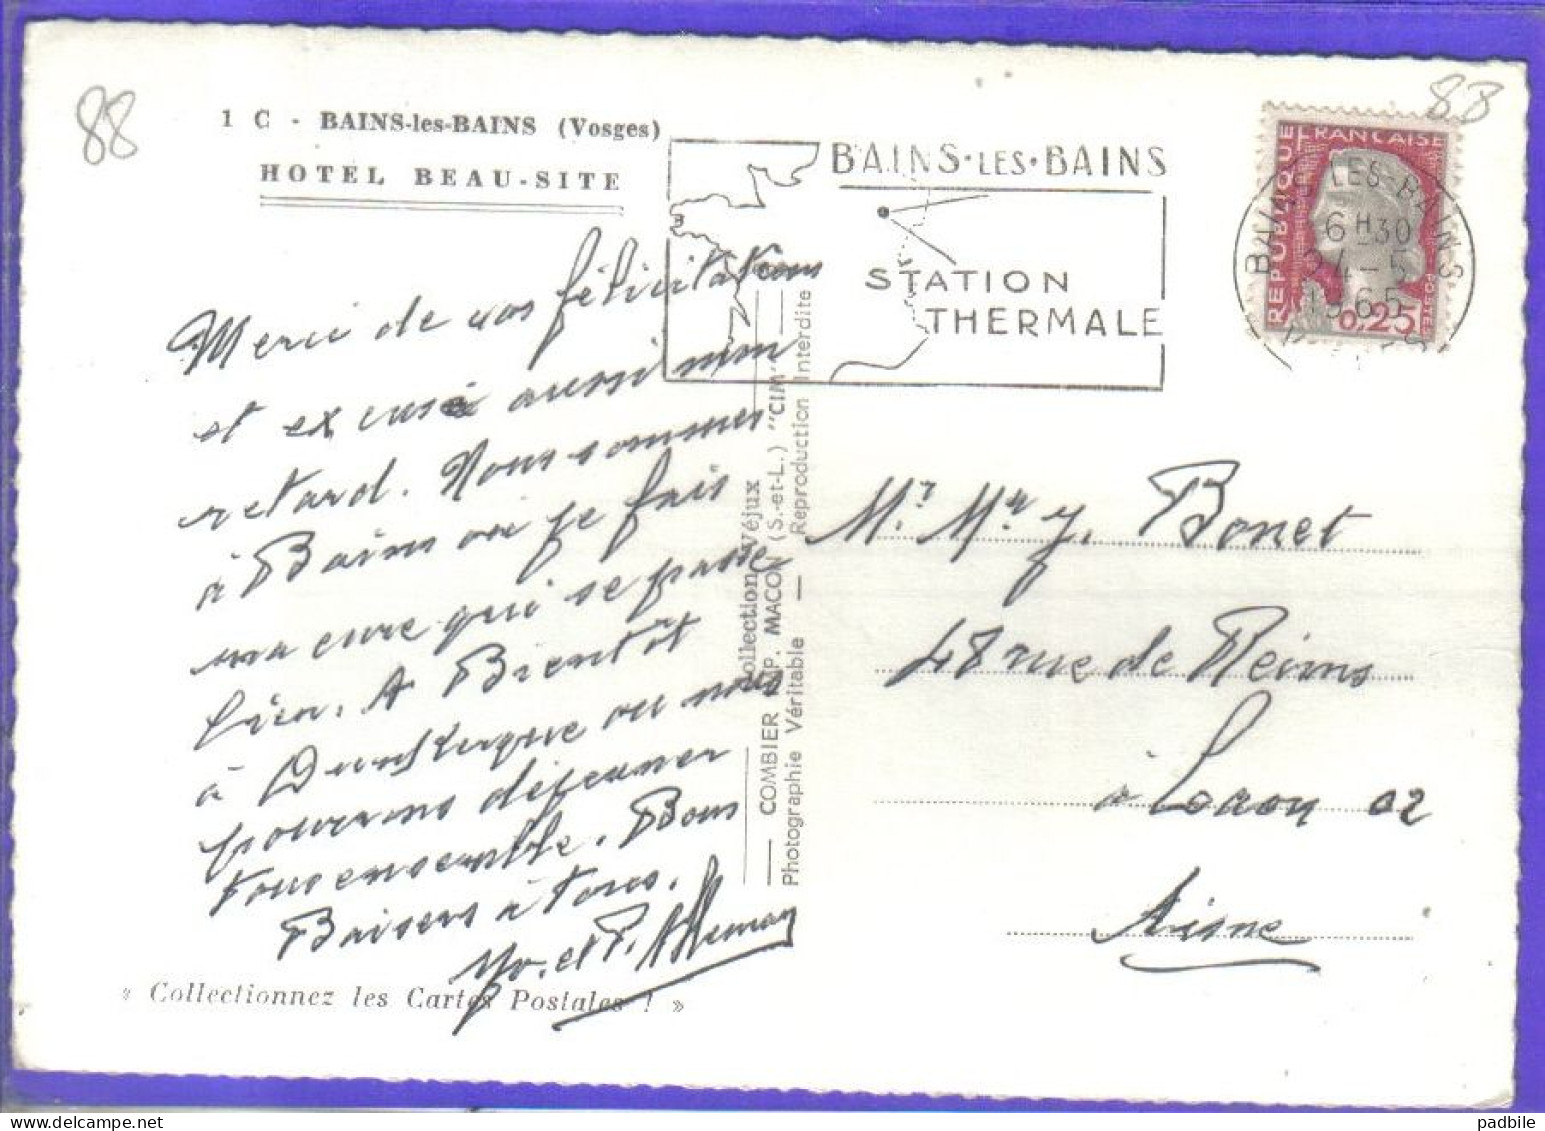 88
88
1 C - BAINS-les-BAINS (Vosges)
HOTEL BEAU-SITE
BAINS·LES·BAINS
STATION
THERMALE
REPUBLIQUE FRANÇAISE
POSTES
0,25
BAINS-LES-BAINS
6H30
24-5
1965
VOSGES
Merci de vos félicitations
et excusé aussi mon
retard. Nous sommes
à Bains où je fais
ma cure qui se passe
bien. A Bientôt
à Dunkerque ou nous
pourrons déjeuner
tous ensemble. Bons
Baisers à tous.
Yo. et P. Alleman
« Collectionnez les Cartes Postales ! »
Collection Véjux
COMBIER IMP. MACON (S.-et-L.) "CIM"
Photographie Véritable — Reproduction Interdite
Mr. Me J. Bonet
48 rue de Reims
à Laon 02
Aisne
padbile
delcampe.net